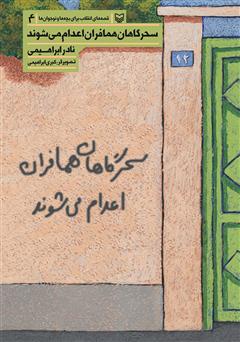 قصه‌های انقلاب برای بچه‌ها و نوجوان‌ها
۴
سحرگاهان همافران اعدام می‌شوند
نادر ابراهیمی
تصویرگر: کبری ابراهیمی
۹۲
سحرگاهان همافران
اعدام می‌شوند